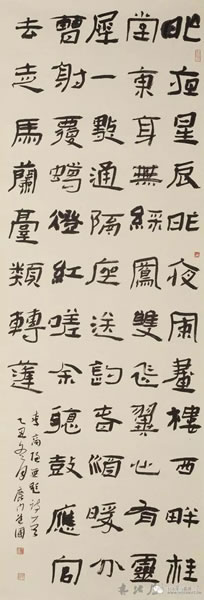 昨夜星辰昨夜風畫樓西畔桂
堂東身無綵鳳雙飛翼心有靈
犀一點通隔座送鉤春酒暖分
曹射覆蠟燈紅嗟余聽鼓應官
去走馬蘭臺類轉蓬
李商隱無題詩一首
乙丑冬月